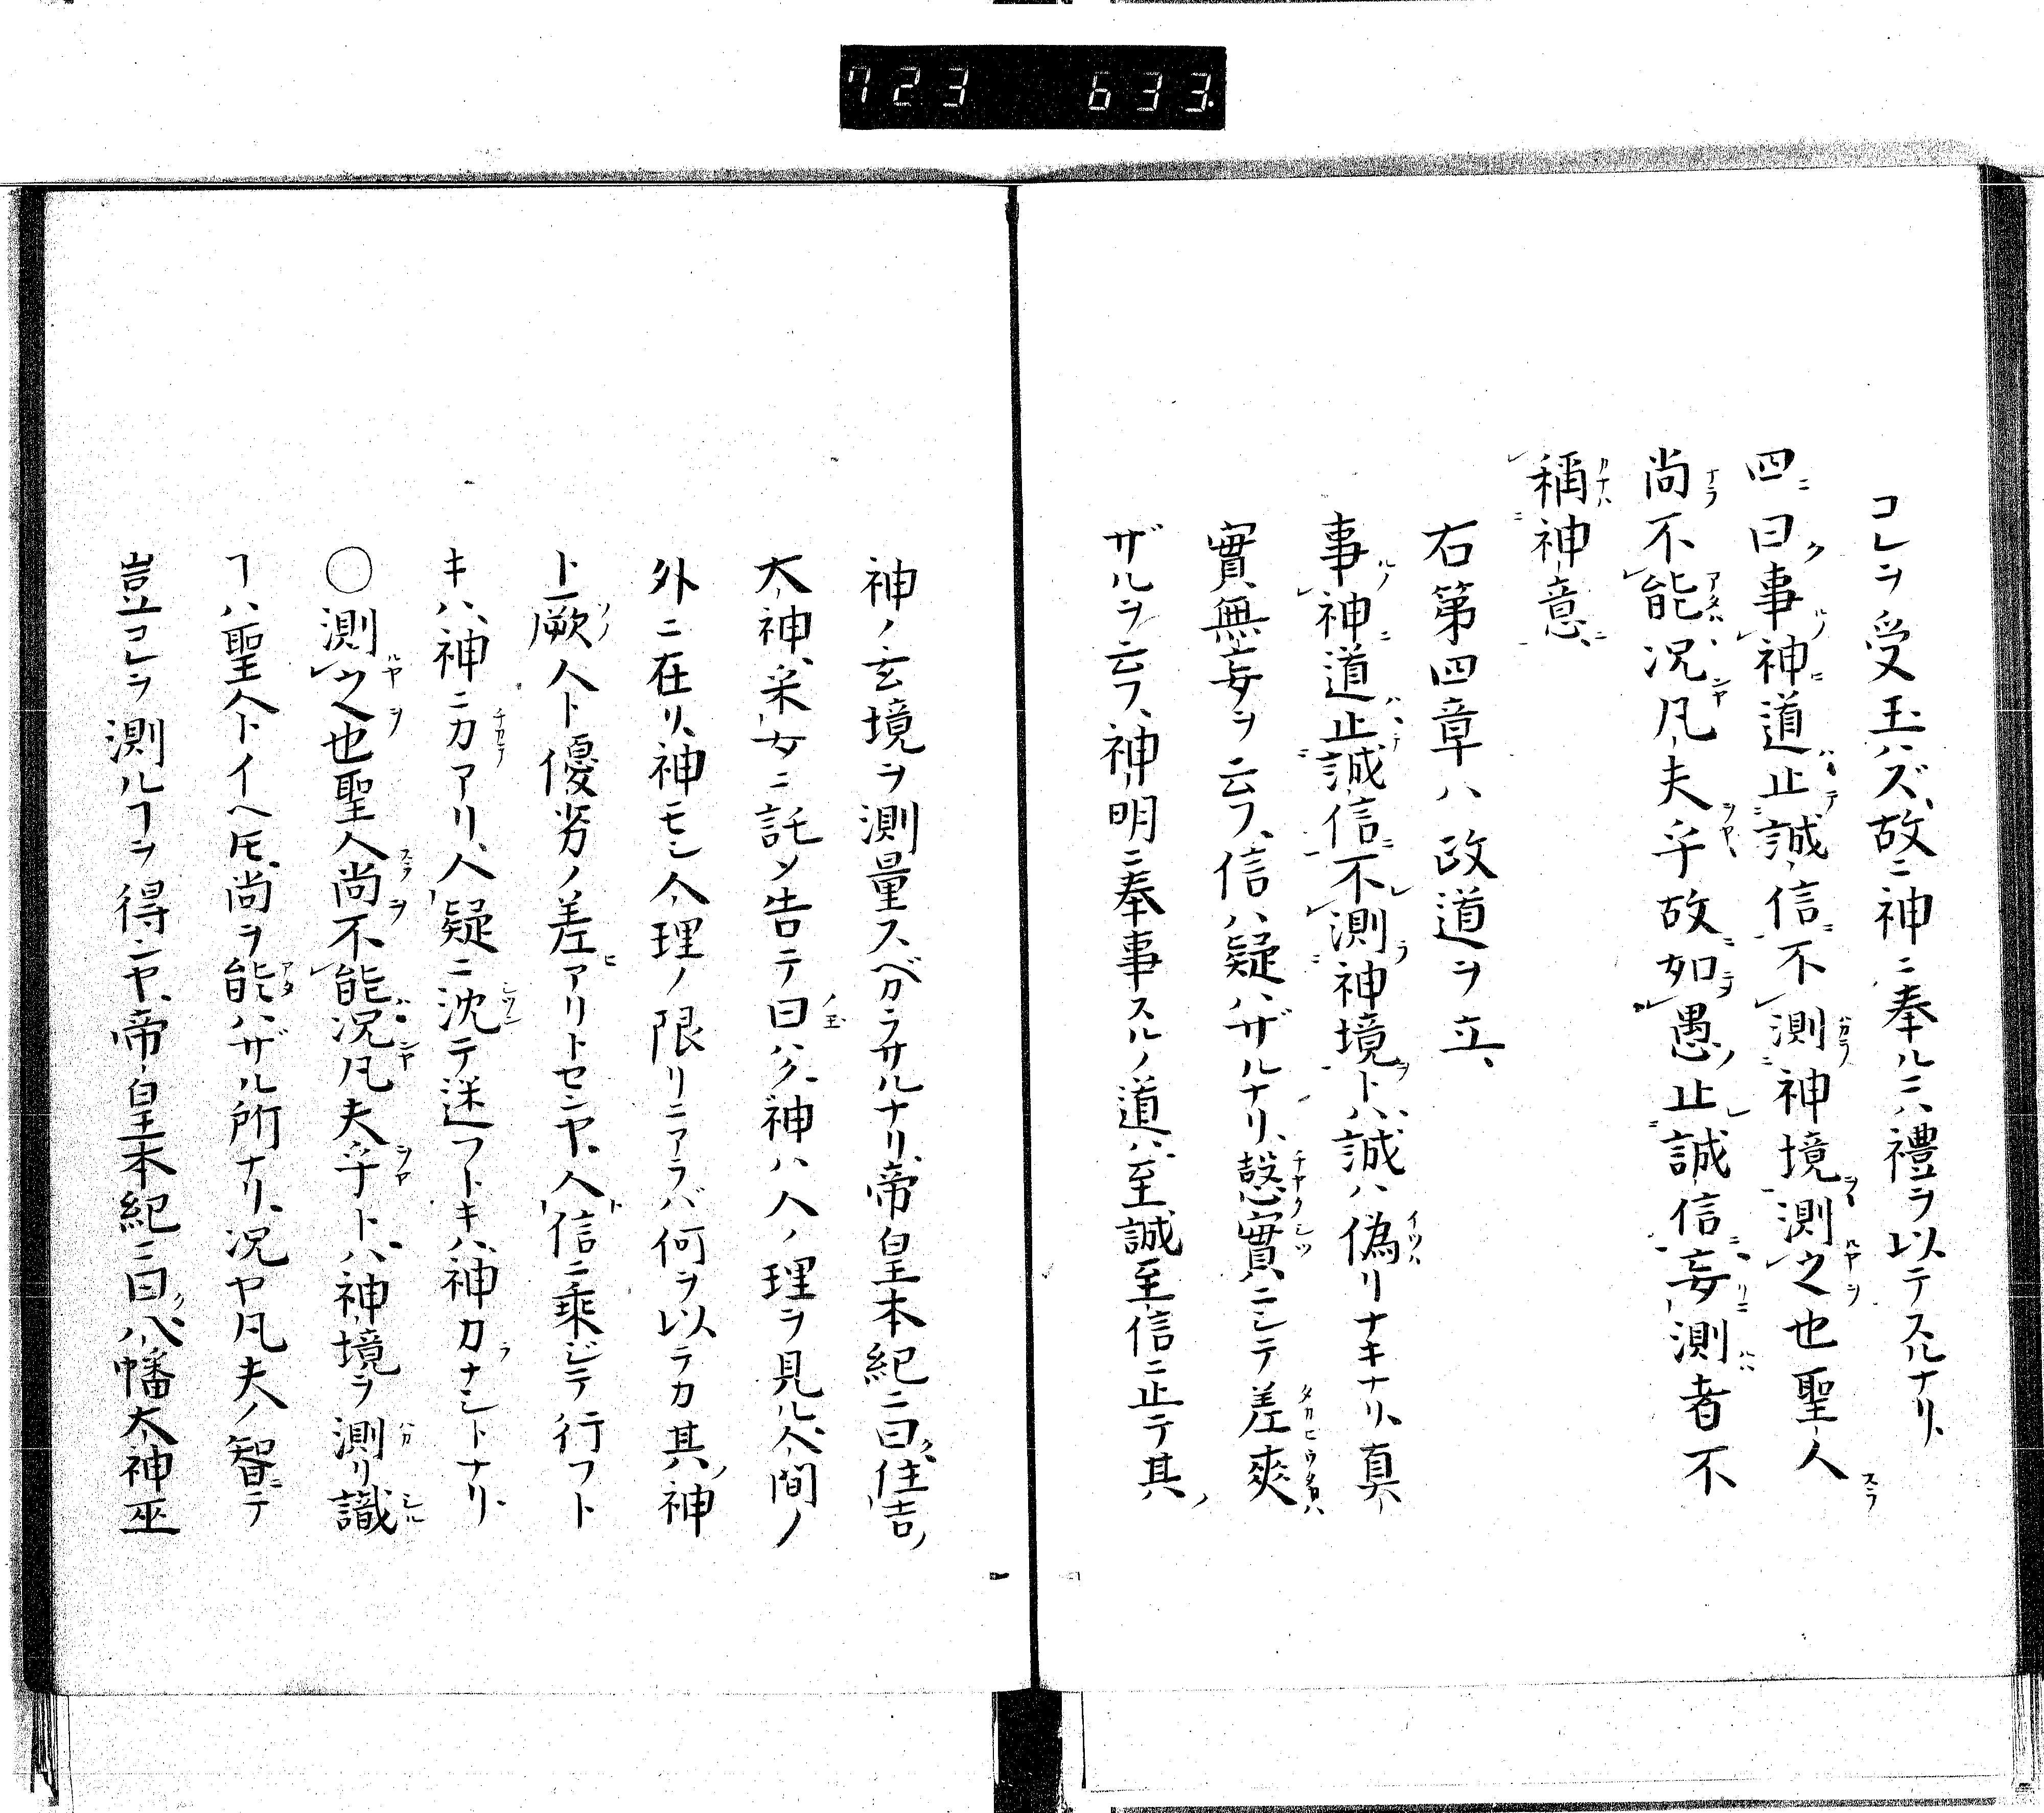 723 633.
コレヲ受玉ハズ、故ニ神ニ奉ルニハ禮ヲ以テスルナリ、
四曰事神道止誠信不測神境測之也聖人
尚不能况凡夫乎故如愚止誠信妄測者不
稱神意、
右第四章ハ政道ヲ立、
事神道止誠信不測神境トハ、誠ハ偽リナキナリ、真
實無妄ヲ云フ、信ハ疑ハザルナリ、慤實ニシテ差爽
ザルヲ云フ、神明ニ奉事スルノ道ハ、至誠至信ニ止テ其
神ノ玄境ヲ測量スベカラサルナリ、帝皇本紀ニ曰、住吉
大神、采女ニ託〆告テ曰ハク、神ハ人ノ理ヲ見ル、人間ノ
外ニ在リ、神モシ人理ノ限リニアラバ何ヲ以テカ其神
ト厥人ト優劣ノ差アリトセンヤ、人信ニ乘ジテ行フト
キハ、神ニカアリ、人疑ニ沈テ迷フトキハ、神力ナシトナリ、
○測之也聖人尚不能况凡夫乎トハ、神境ヲ測リ識
ヿハ聖人トイヘ𪜈、尚ヲ能ハザル所ナリ、况ヤ凡夫ノ智ニテ
豈コレヲ測ルヿヲ得ンヤ、帝皇本紀ニ曰、八幡大神巫